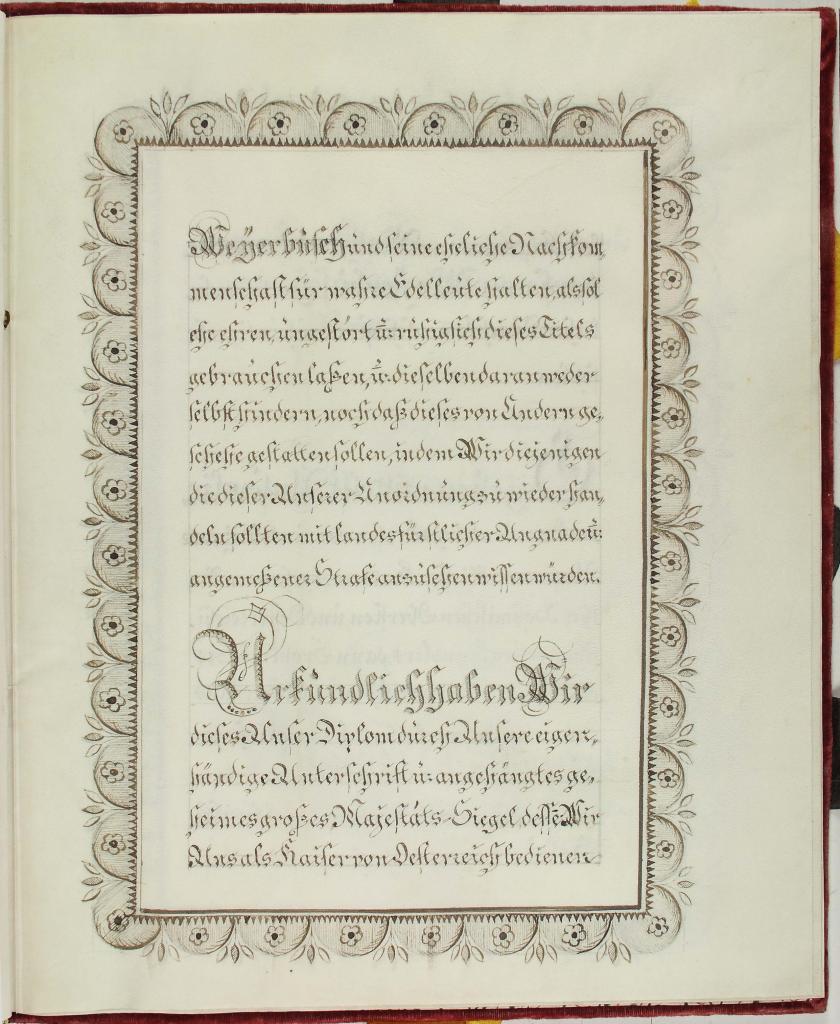 Weÿerbüsch und seine eheliche Nachkom
menschaft für wahre Edelleute halten, als sol
che ehren, ungestört u: ruhig sich dieses Titels
gebrauchen laßen, u: dieselben daran weder
selbst hindern, noch daß dieses von Andern ge-
schehe gestatten sollen, indem Wir diejenigen
die dieser Unserer Anordnung zuwieder han-
deln sollten mit landesfürstlicher Ungnade u:
angemeßener Strafe anzusehen wissen würden.
Urkundlich haben Wir
dieses Unser Diplom durch Unsere eigen-
händige Unterschrift u: angehängtes ge-
heimes großes Majestäts-Siegel, desse̅ Wir
Uns als Kaiser von Oesterreich bedienen-